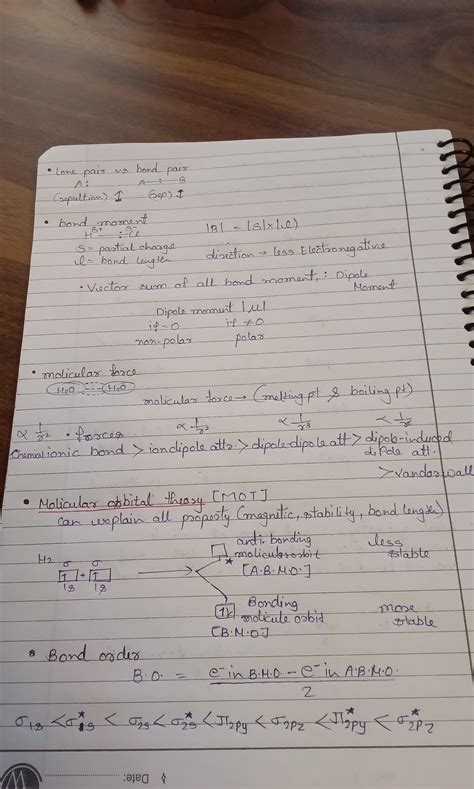 • Lone pair vs bond pair
A: A—:—B
(repultion) ↑ (rep) ↑
• bond moment |B| = |S|x|l|
H^S+ :Cl^S-
S = partial charge direction → less Electronegative
l = bond length
• Vector sum of all bond moment, : Dipole Moment
Dipole moment |μ|
if = 0 if ≠ 0
non-polar polar
• molicular force
H2O --- H2O
molicular force → (melting pt & boiling pt)
∝ 1/r² • forces ∝ 1/r³ ∝ 1/r³
ionic bond > iondipole attr. > dipole-dipole att > dipole-induced dipole att.
> vandar wall
• Molicular orbital theory [MOT]
can explain all property (magnetic, stability, bond length)
H2 σ σ anti-bonding less
1 + 1 molicular orbit * stable
1s 1s [A.B.M.O.]
Bonding more
molicule orbit stable
[B.M.O]
• Bond order
B.O. = e⁻ in B.M.O - e⁻ in A.B.M.O. / 2
σ1s < σ*1s < σ2s < σ*2s < π2py < σ2pz < π*2py < σ*2pz
W
Date: